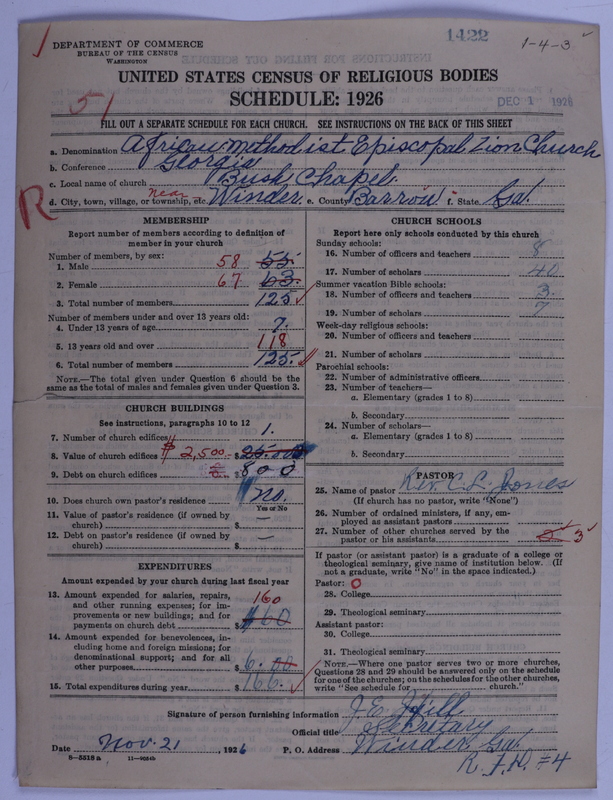 1422
1-4-3
DEPARTMENT OF COMMERCE
BUREAU OF THE CENSUS
WASHINGTON
UNITED STATES CENSUS OF RELIGIOUS BODIES
SCHEDULE: 1926
DEC 1 1926
51
FILL OUT A SEPARATE SCHEDULE FOR EACH CHURCH. SEE INSTRUCTIONS ON THE BACK OF THIS SHEET
a. Denomination African Methodist Episcopal Zion Church
b. Conference Georgia
c. Local name of church Bush Chapel
R
d. City, town, village, or township, etc. near Winder e. County Barrow f. State Ga.
MEMBERSHIP
Report number of members according to definition of member in your church
Number of members, by sex:
1. Male 58 55
2. Female 67 63
3. Total number of members 125
Number of members under and over 13 years old:
4. Under 13 years of age 7.
5. 13 years old and over 118
6. Total number of members 125
NOTE.—The total given under Question 6 should be the same as the total of males and females given under Question 3.
CHURCH BUILDINGS
See instructions, paragraphs 10 to 12
7. Number of church edifices 1.
8. Value of church edifices $ 2,500. $
9. Debt on church edifices $ 800
10. Does church own pastor's residence no.
Yes or No
11. Value of pastor's residence (if owned by church) $ —
12. Debt on pastor's residence (if owned by church) $ —
EXPENDITURES
Amount expended by your church during last fiscal year
13. Amount expended for salaries, repairs, and other running expenses; for improvements or new buildings; and for payments on church debt 160 $ 160
14. Amount expended for benevolences, including home and foreign missions; for denominational support; and for all other purposes $ 6.00
15. Total expenditures during year $ 166.
CHURCH SCHOOLS
Report here only schools conducted by this church
Sunday schools:
16. Number of officers and teachers 8
17. Number of scholars 40
Summer vacation Bible schools:
18. Number of officers and teachers 3.
19. Number of scholars 7
Week-day religious schools:
20. Number of officers and teachers
21. Number of scholars
Parochial schools:
22. Number of administrative officers
23. Number of teachers—
a. Elementary (grades 1 to 8)
b. Secondary
24. Number of scholars—
a. Elementary (grades 1 to 8)
b. Secondary
PASTOR
25. Name of pastor Rev. C. L. Jones
(If church has no pastor, write "None")
26. Number of ordained ministers, if any, employed as assistant pastors
27. Number of other churches served by the pastor or his assistants 3
If pastor (or assistant pastor) is a graduate of a college or theological seminary, give name of institution below. (If not a graduate, write "No" in the space indicated.)
Pastor: O
28. College
29. Theological seminary
Assistant pastor:
30. College
31. Theological seminary
NOTE.—Where one pastor serves two or more churches, Questions 28 and 29 should be answered only on the schedule for one of the churches; on the schedules for the other churches, write "See schedule for church."
Signature of person furnishing information J. E. Hill
Official title Secretary
Date Nov. 21, 1926 P. O. Address Winder, Ga.
R. F. D. #4
8—5318 a 11—9034b